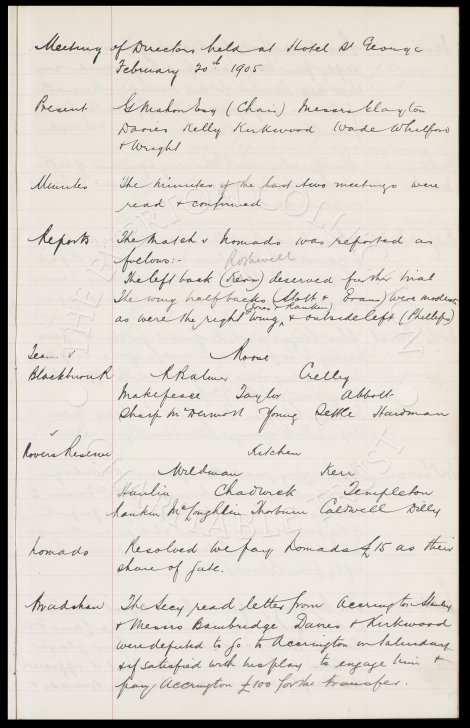 Meeting of Directors held at Hotel St George
February 20th 1905.
Present G Mahon Esq (Chair) Messrs Clayton
Davies Kelly Kirkwood Wade Whitford
& Wright
Minutes The minutes of the last two meetings were
read & confirmed
Reports The Match v Nomads was reported as
follows:- Rothwell
The left back ( ) deserved further trial
The wing half backs (Stott & Evans) were modest
Jones & Rankin)
as were the right wing & outside left (Phillips)
Team v Roose
Blackburn R R Balmer Crelley
Makepeace Taylor Abbott
Sharp McDermott Young Settle Hardman
v
Rovers Reserve Kitchen
Wildman Kerr
Hamlin Chadwick Templeton
Rankin McLoghlin Thorburn Caldwell Dilly
Nomads Resolved we pay Nomads £15 as their
share of gate.
Bradshaw The Secy read letter from Accrington Stanley
& Messrs Bainbridge Davies & Kirkwood
were deputed to go to Accrington on Saturday
& if satisfied with his play to engage him &
pay Accrington £100 for the transfer.
THE EVERTON COLLECTION
CHARITABLE TRUST